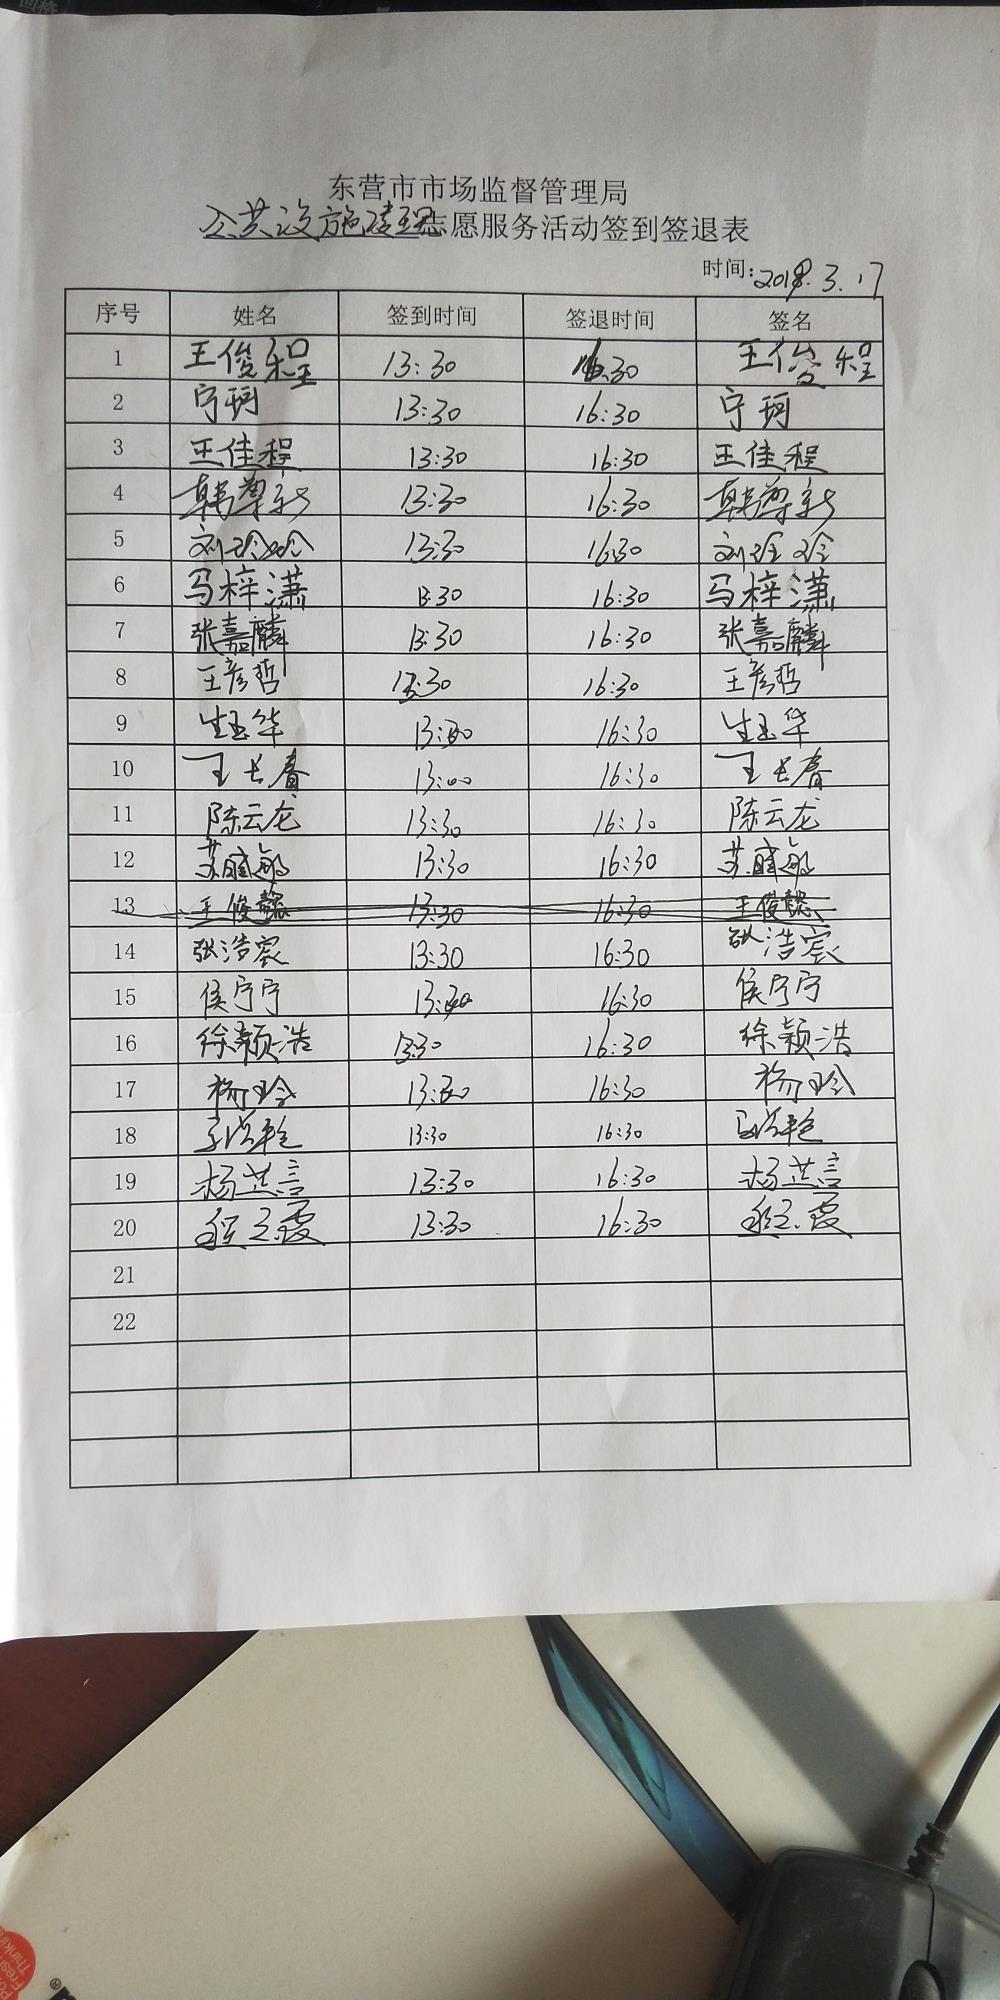 东营市市场监督管理局
公共设施清理志愿服务活动签到签退表
时间:2019.3.17
序号 姓名 签到时间 签退时间 签名
1 王俊程 13:30 16:30 王俊程
2 宁珂 13:30 16:30 宁珂
3 王佳程 13:30 16:30 王佳程
4 韩尊新 13:30 16:30 韩尊新
5 刘玲玲 13:30 16:30 刘玲玲
6 马梓潇 13:30 16:30 马梓潇
7 张嘉麟 13:30 16:30 张嘉麟
8 王彦哲 13:30 16:30 王彦哲
9 生玉华 13:30 16:30 生玉华
10 王长春 13:00 16:30 王长春
11 陈云龙 13:30 16:30 陈云龙
12 苏 敏 13:30 16:30 苏 敏
13 王俊懿 13:30 16:30 王俊懿
14 张浩宸 13:30 16:30 张浩宸
15 侯宁宁 13:30 16:30 侯宁宁
16 徐颖浩 13:30 16:30 徐颖浩
17 杨玲 13:30 16:30 杨玲
18 13:30 16:30
19 杨芷言 13:30 16:30 杨芷言
20 程 霞 13:30 16:30 程 霞
21
22